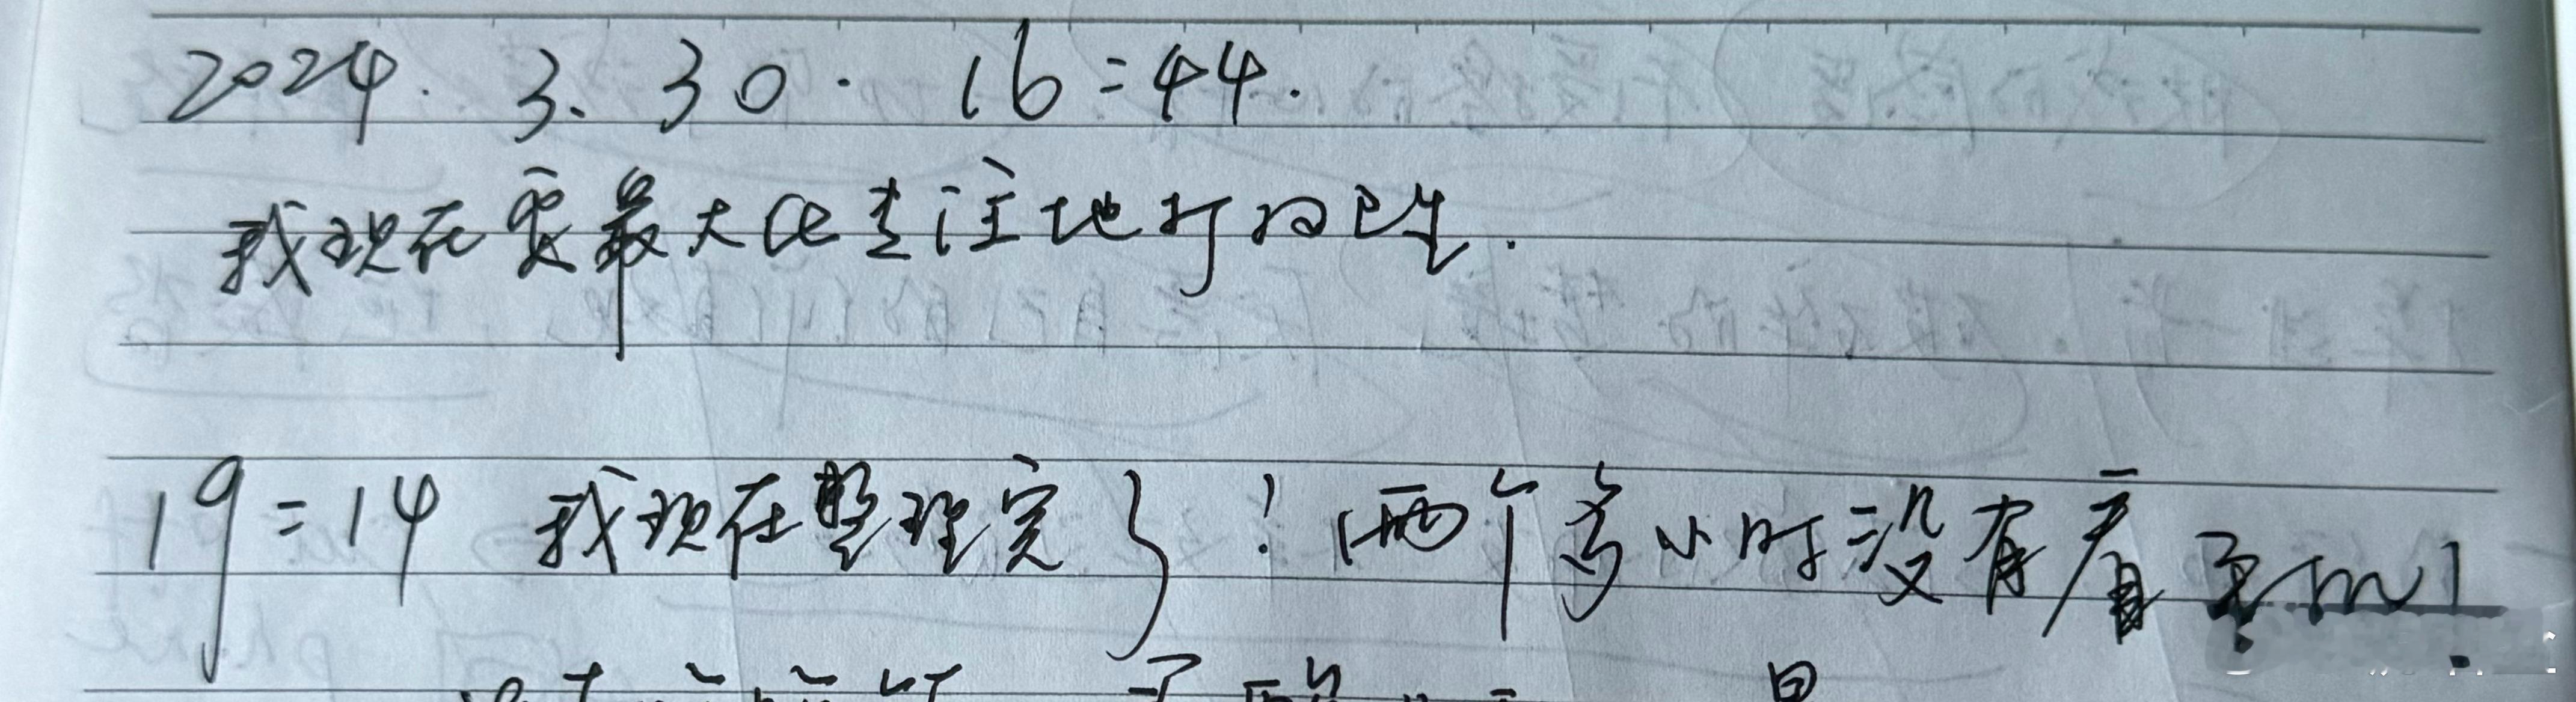 2024.3.30. 16:44.
我现在要最大化专注地打扫卫生.
19:14 我现在整理完了!两个多小时没有看手机!